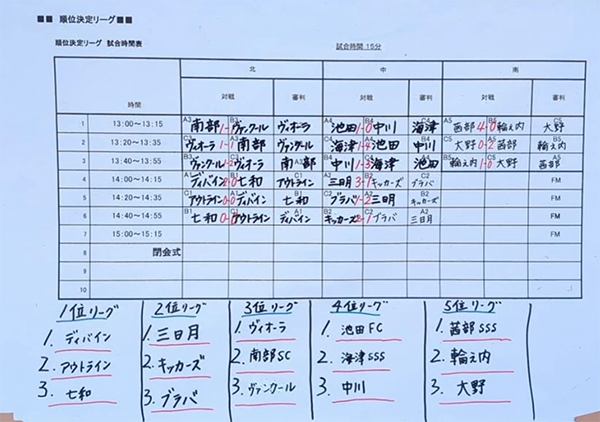 ■■ 順位決定リーグ■■
順位決定リーグ 試合時間表
試合時間 15分
北 中 南
時間 対戦 審判 対戦 審判 対戦 審判
1 13:00～13:15 A3 南部 1-1 B3 ヴァンクール ヴィオーラ A4 池田 1-0 B4 中川 海津 A5 茜部 4-0 B5 輪之内 C5 大野
2 13:20～13:35 C3 ヴィオーラ 1-1 A3 南部 ヴァンクール C4 海津 1-4 A4 池田 中川 C5 大野 0-2 A5 茜部 B5 輪之内
3 13:40～13:55 B3 ヴァンクール C3 ヴィオーラ A3 南部 B4 中川 1-3 C4 海津 池田 B5 輪之内 1-0 C5 大野 A5 茜部
4 14:00～14:15 A1 ディバイン B1 七和 C1 アウトライン A2 三日月 3-1 B2 キッカーズ C2 ブラバ FM
5 14:20～14:35 C1 アウトライン 0-0 A1 ディバイン B1 七和 C2 ブラバ 1-2 A2 三日月 B2 キッカーズ FM
6 14:40～14:55 B1 七和 C1 アウトライン A1 ディバイン B2 キッカーズ C2 ブラバ A2 三日月 FM
7 15:00～15:15 FM
8 閉会式
9
10
1位リーグ 2位リーグ 3位リーグ 4位リーグ 5位リーグ
1. ディバイン 1. 三日月 1. ヴィオーラ 1. 池田FC 1. 茜部SSS
2. アウトライン 2. キッカーズ 2. 南部SC 2. 海津SSS 2. 輪之内
3. 七和 3. ブラバ 3. ヴァンクール 3. 中川 3. 大野